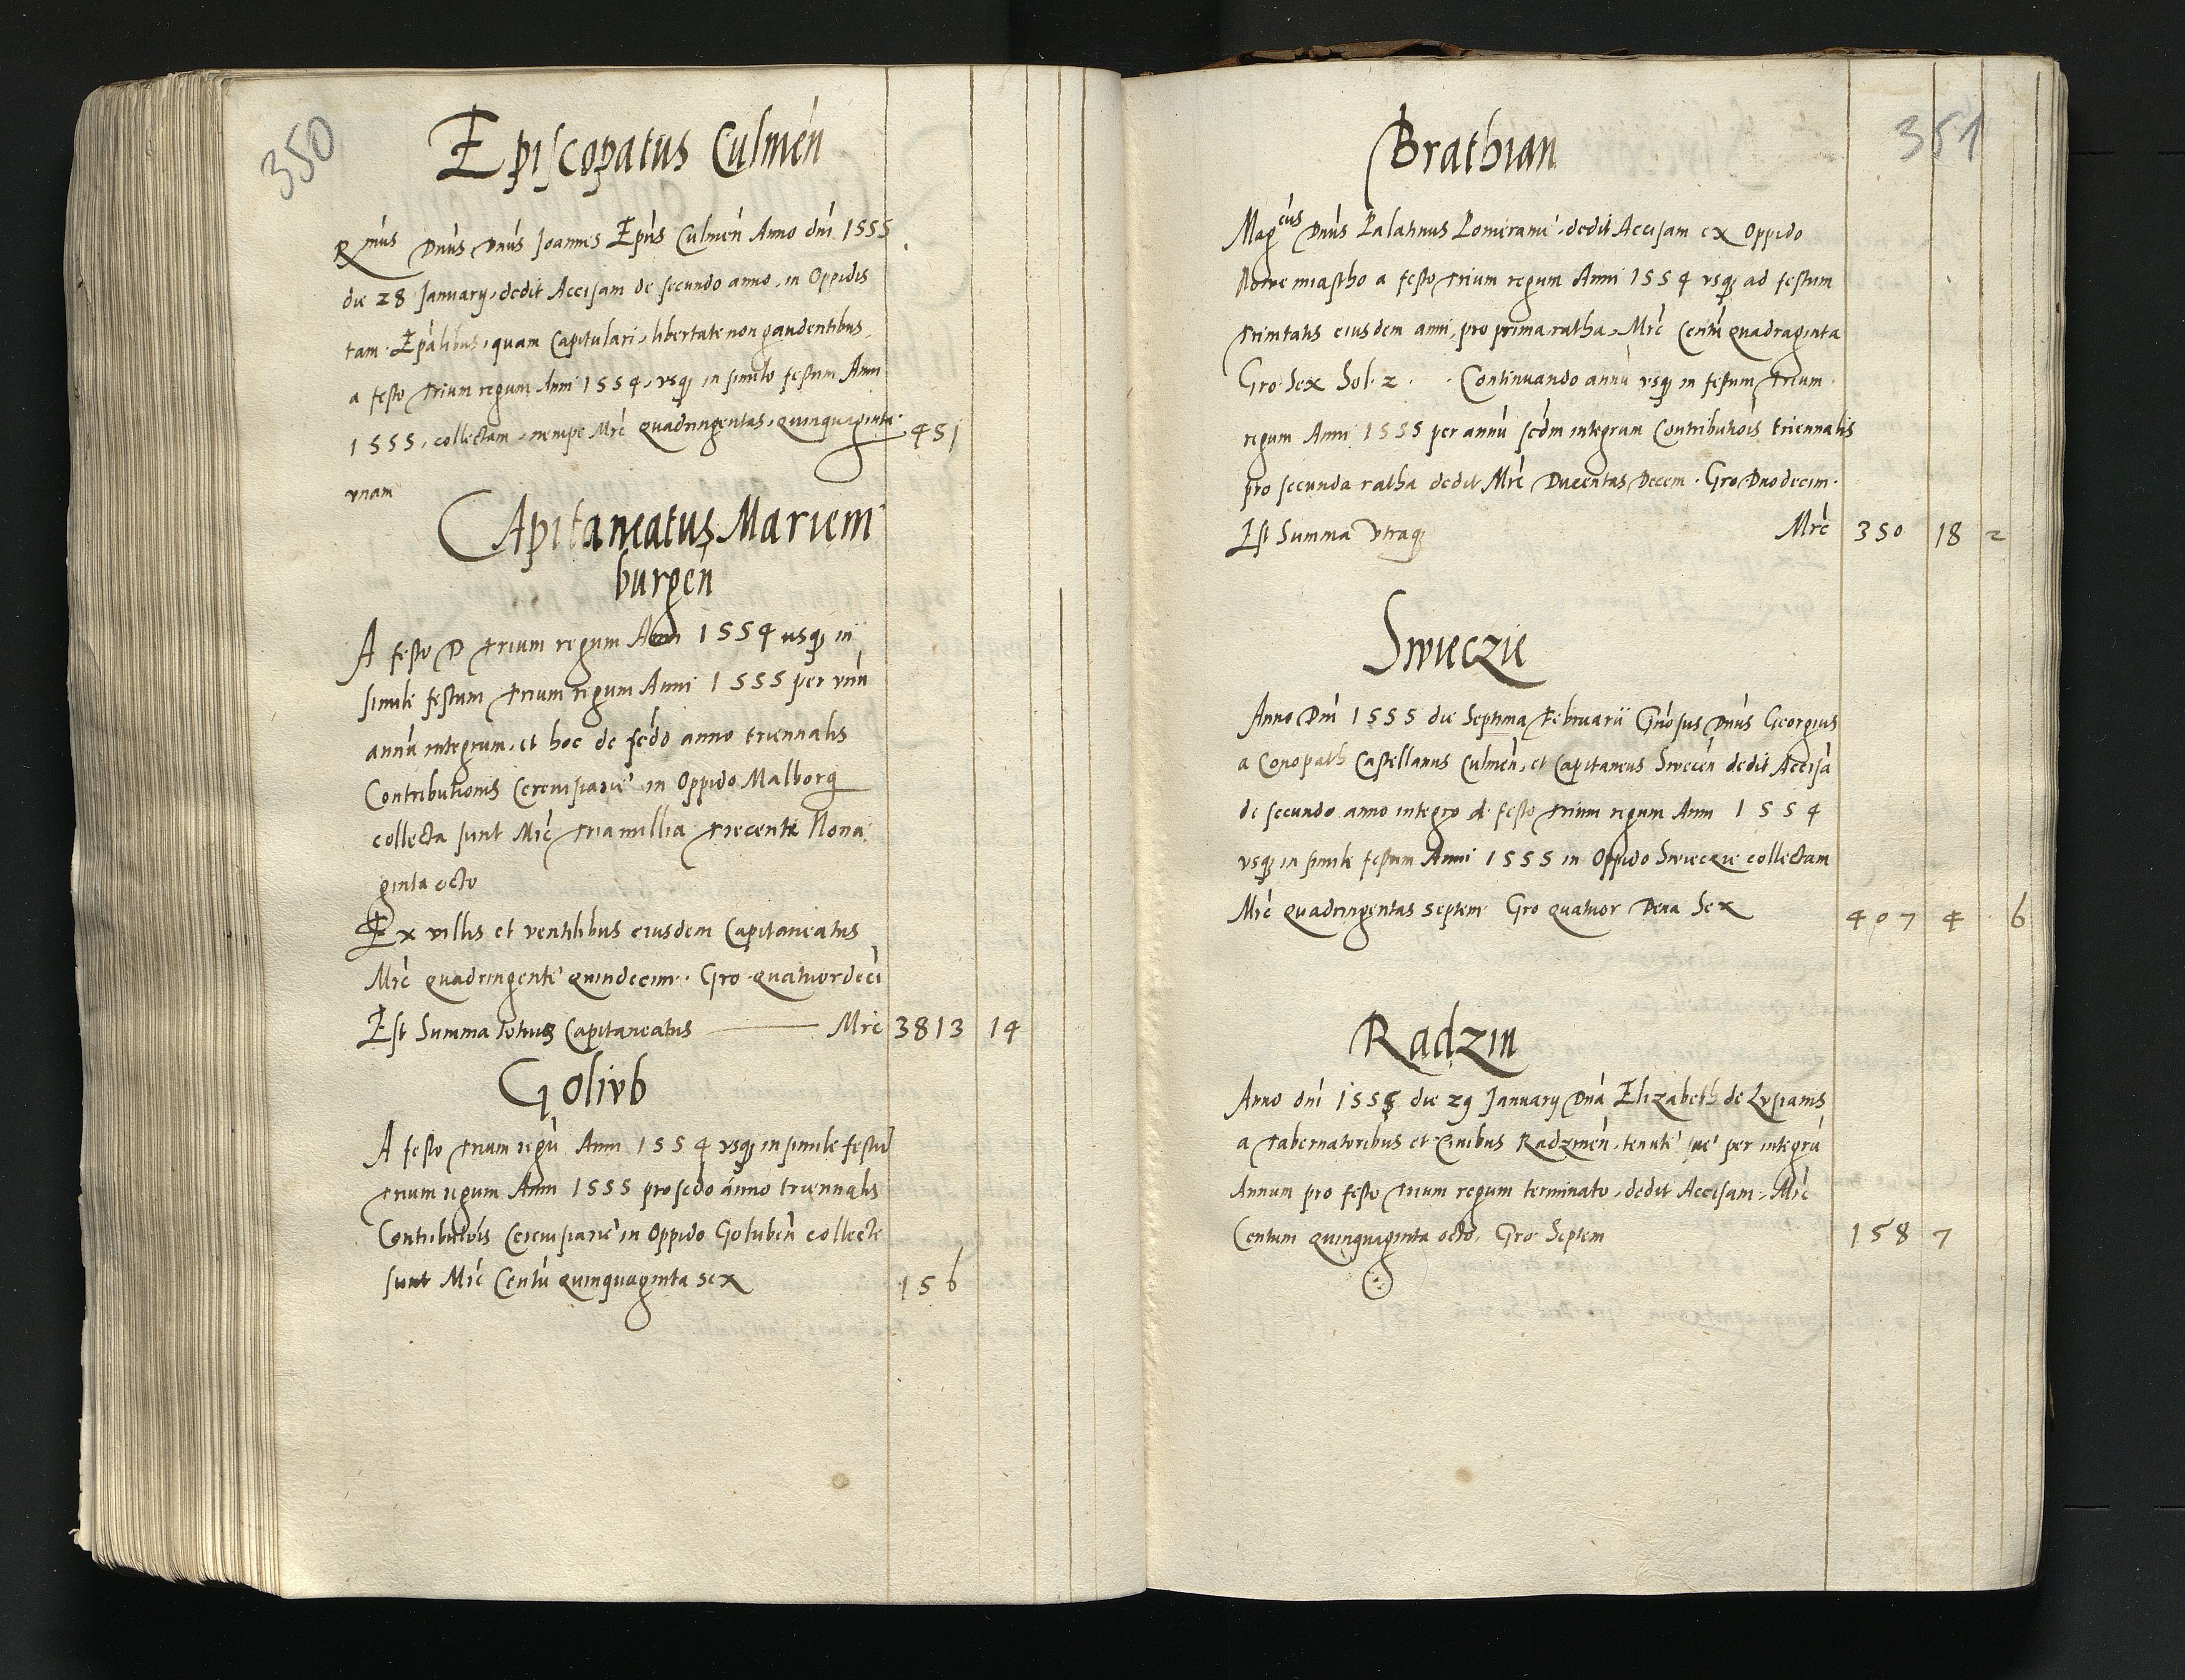 350
Episcopatus Culmeń
Rmus Dnus Dnus Joannes Epus Culmeń Anno dni 1555
die 28 January, dedit Accisam de secundo anno, in Oppidis
tam Epalibus, quam Capitulari, libertate non gaudentibus
a festo trium regum Anni 1554, vsqʒ in simile festum Anni
1555, collectam, nempe Mrc quadringentas, quinquaginta 451
vnam
Capitaneatus Mariem
burgeń
A festo D trium regum Anni 1554 usqʒ in
simile festum trium regum Anni 1555 per vnu
annu integrum, et hoc de scdo anno triennalis
Contributionis Cereuisiarie in Oppido Malborg
collecta sunt Mrc tria millia trecente Nona
ginta octo
Ex villis et ventilibus eiusdem Capitaneatus
Mrc quadringente quindecim. Gro quatuordeci
Est Summa totius Capitaneatus Mrc 3813 14
Golivb
A festo trium regu Anni 1554 vsqʒ in simile festu
trium regum Anni 1555 pro scdo anno triennalis
Contributois Cereuisiarie in Oppido Golubeń collecte
sunt Mrc Centu quinquaginta sex 156
351
Brathian
Magcus Dnus Palatinus Pomeranie dedit Accisam ex Oppido
Nowe miastho a festo trium regum Anni 1554 vsqʒ ad festum
trinitatis eiusdem anni, pro prima ratha, Mrc Centu quadraginta
Gro Sex Sol. 2. Continuando annu vsqʒ in festum trium
regum Anni 1555 per annu scdm integrum Contributiois triennalis
pro secunda ratha dedit Mrc Ducentas Decem. Gro Duodecim.
Est Summa vtraqʒ Mrc 350 18 2
Swieczie
Anno Dni 1555 die Septima Februarii Gnosus Dnus Georgius
a Conopath Castellanus Culmeń, et Capitaneus Sweceń dedit Accisa
de secundo anno integro a festo trium regum Anni 1554
vsqʒ in simile festum Anni 1555 in Oppido Swieczie collectam
Mrc quadringentas septem Gro quatuor Dena Sex 407 4 6
Radzin
Anno dni 1555 die 29 January Dna Elizabeth de Lusianis
a tabernatoribus et Ciuibus Radzineń, tenute sue per integru
Annum pro festo trium regum terminato, dedit Accisam, Mrc
Centum quinquaginta octo, Gro Septem 158 7